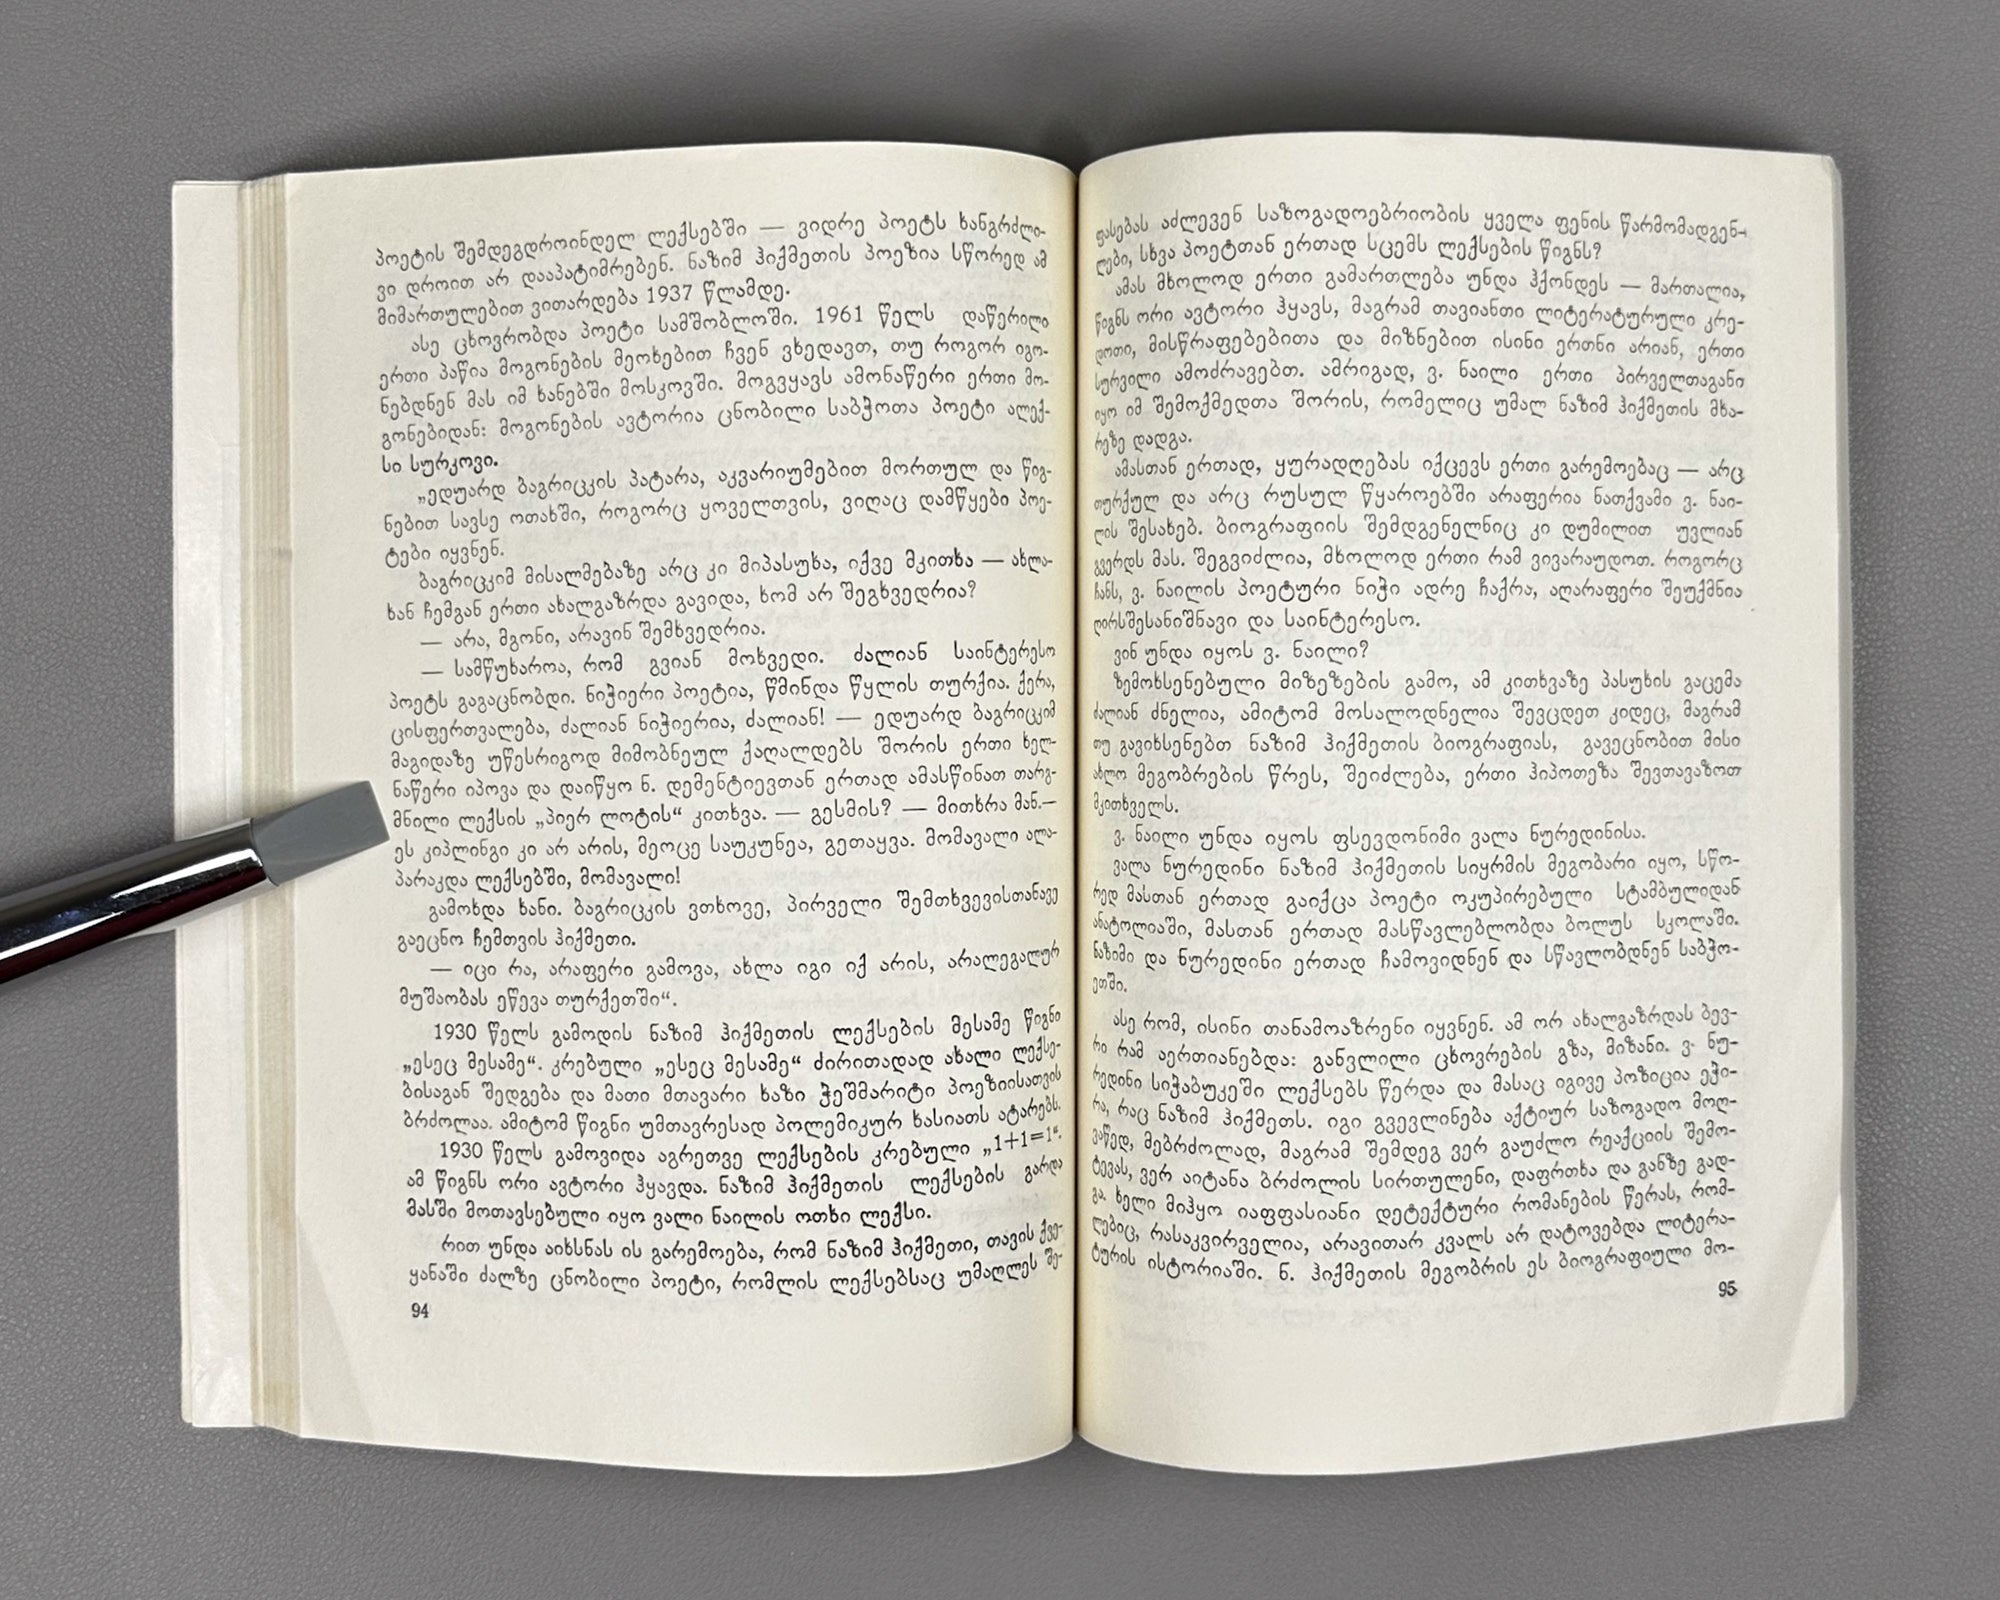 პოეტის შემდეგდროინდელ ლექსებში — ვიდრე პოეტს ხანგრძლი-
ვი დროით არ დააპატიმრებენ. ნაზიმ ჰიქმეთის პოეზია სწორედ ამ
მიმართულებით ვითარდება 1937 წლამდე.
ასე ცხოვრობდა პოეტი სამშობლოში. 1961 წელს დაწერილი
ერთი პაწია მოგონების მეოხებით ჩვენ ვხედავთ, თუ როგორ იგო-
ნებდნენ მას იმ ხანებში მოსკოვში. მოგვყავს ამონაწერი ერთი მო-
გონებიდან: მოგონების ავტორია ცნობილი საბჭოთა პოეტი ალექ-
სი სურკოვი.
„ედუარდ ბაგრიცკის პატარა, აკვარიუმებით მორთულ და წიგ-
ნებით სავსე ოთახში, როგორც ყოველთვის, ვიღაც დამწყები პოე-
ტები იყვნენ.
ბაგრიცკიმ მისალმებაზე არც კი მიპასუხა, იქვე მკითხა — ახლა-
ხან ჩემგან ერთი ახალგაზრდა გავიდა, ხომ არ შეგხვედრია?
— არა, მგონი, არავინ შემხვედრია.
— სამწუხაროა, რომ გვიან მოხვედი. ძალიან საინტერესო
პოეტს გაგაცნობდი. ნიჭიერი პოეტია, წმინდა წყლის თურქია. ქერა,
ცისფერთვალება, ძალიან ნიჭიერია, ძალიან! — ედუარდ ბაგრიცკიმ
მაგიდაზე უწესრიგოდ მიმობნეულ ქაღალდებს შორის ერთი ხელ-
ნაწერი იპოვა და დაიწყო ნ. დემენტიევთან ერთად ამასწინათ თარგ-
მნილი ლექსის „პიერ ლოტის“ კითხვა. — გესმის? — მითხრა მან.—
ეს კიპლინგი კი არ არის, მეოცე საუკუნეა, გეთაყვა. მომავალი ალა-
პარაკდა ლექსებში, მომავალი!
გამოხდა ხანი. ბაგრიცკის ვთხოვე, პირველი შემთხვევისთანავე
გაეცნო ჩემთვის ჰიქმეთი.
— იცი რა, არაფერი გამოვა, ახლა იგი იქ არის, არალეგალურ
მუშაობას ეწევა თურქეთში“.
1930 წელს გამოდის ნაზიმ ჰიქმეთის ლექსების მესამე წიგნი
„ესეც მესამე“. კრებული „ესეც მესამე“ ძირითადად ახალი ლექსე-
ბისაგან შედგება და მათი მთავარი ხაზი ჭეშმარიტი პოეზიისათვის
ბრძოლაა. ამიტომ წიგნი უმთავრესად პოლემიკურ ხასიათს ატარებს.
1930 წელს გამოვიდა აგრეთვე ლექსების კრებული „1+1=1“.
ამ წიგნს ორი ავტორი ჰყავდა. ნაზიმ ჰიქმეთის ლექსების გარდა
მასში მოთავსებული იყო ვალი ნაილის ოთხი ლექსი.
რით უნდა აიხსნას ის გარემოება, რომ ნაზიმ ჰიქმეთი, თავის ქვე-
ყანაში ძალზე ცნობილი პოეტი, რომლის ლექსებსაც უმაღლეს შე-
94
ფასებას აძლევენ საზოგადოებრიობის ყველა ფენის წარმომადგენ-
ლები, სხვა პოეტთან ერთად სცემს ლექსების წიგნს?
ამას მხოლოდ ერთი გამართლება უნდა ჰქონდეს — მართალია,
წიგნს ორი ავტორი ჰყავს, მაგრამ თავიანთი ლიტერატურული კრე-
დოთი, მისწრაფებებითა და მიზნებით ისინი ერთნი არიან, ერთი
სურვილი ამოძრავებთ. ამრიგად, ვ. ნაილი ერთი პირველთაგანი
იყო იმ შემოქმედთა შორის, რომელიც უმალ ნაზიმ ჰიქმეთის მხა-
რეზე დადგა.
ამასთან ერთად, ყურადღებას იქცევს ერთი გარემოებაც — არც
თურქულ და არც რუსულ წყაროებში არაფერია ნათქვამი ვ. ნაი-
ლის შესახებ. ბიოგრაფიის შემდგენელნიც კი დუმილით უვლიან
გვერდს მას. შეგვიძლია, მხოლოდ ერთი რამ ვივარაუდოთ. როგორც
ჩანს, ვ. ნაილის პოეტური ნიჭი ადრე ჩაქრა, აღარაფერი შეუქმნია
ღირსშესანიშნავი და საინტერესო.
ვინ უნდა იყოს ვ. ნაილი?
ზემოხსენებული მიზეზების გამო, ამ კითხვაზე პასუხის გაცემა
ძალიან ძნელია, ამიტომ მოსალოდნელია შევცდეთ კიდეც, მაგრამ
თუ გავიხსენებთ ნაზიმ ჰიქმეთის ბიოგრაფიას, გავეცნობით მისი
ახლო მეგობრების წრეს, შეიძლება, ერთი ჰიპოთეზა შევთავაზოთ
მკითხველს.
ვ. ნაილი უნდა იყოს ფსევდონიმი ვალა ნურედინისა.
ვალა ნურედინი ნაზიმ ჰიქმეთის სიყრმის მეგობარი იყო, სწო-
რედ მასთან ერთად გაიქცა პოეტი ოკუპირებული სტამბულიდან
ანატოლიაში, მასთან ერთად მასწავლებლობდა ბოლუს სკოლაში.
ნაზიმი და ნურედინი ერთად ჩამოვიდნენ და სწავლობდნენ საბჭო-
ეთში.
ასე რომ, ისინი თანამოაზრენი იყვნენ. ამ ორ ახალგაზრდას ბევ-
რი რამ აერთიანებდა: განვლილი ცხოვრების გზა, მიზანი. ვ. ნუ-
რედინი სიჭაბუკეში ლექსებს წერდა და მასაც იგივე პოზიცია ეჭი-
რა, რაც ნაზიმ ჰიქმეთს. იგი გვევლინება აქტიურ საზოგადო მოღ-
ვაწედ, მებრძოლად, მაგრამ შემდეგ ვერ გაუძლო რეაქციის შემო-
ტევას, ვერ აიტანა ბრძოლის სირთულენი, დაფრთხა და განზე გად-
გა. ხელი მიჰყო იაფფასიანი დეტექტური რომანების წერას, რომ-
ლებიც, რასაკვირველია, არავითარ კვალს არ დატოვებდა ლიტერა-
ტურის ისტორიაში. ნ. ჰიქმეთის მეგობრის ეს ბიოგრაფიული მო-
95